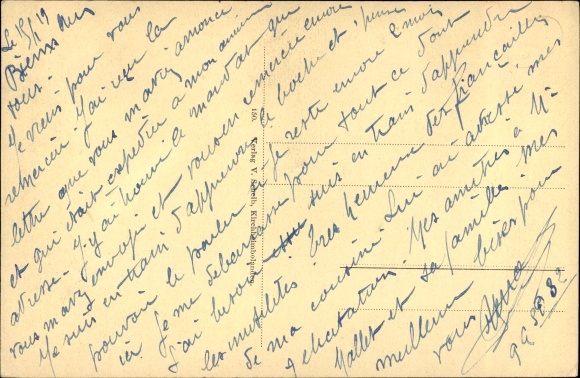 Le 15/1/19
Biens chers
tous.
Je viens pour vous
remercier. J'ai reçu la
lettre que vous m'avez annoncé
et qui était expédiée a mon ancienne
adresse. J'y ai trouvé le mandat que
vous m'avez envoyé et vous en remercie encore
Je suis en train d'apprendre le boche et pense
pouvoir le parler si je reste encore 2 mois
ici Je me debarrasse pour tout ce dont
j'ai besoin suis en train d'apprendre
les mutilés. Très heureuse des fiançailles
de ma cousine. Lui ai adressé mes
félicitations. Mes amitiés à Mr
Mallet et sa famille. Mes
meilleurs bises pour
vous
Verlag V.